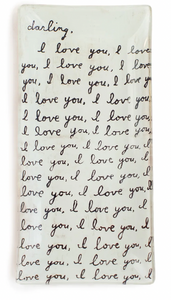 darling,
I love you, I love
you, I love you, I love
you, I love you, I love
I love you, I love you
I love you, I love you,
I love you, I love you,
I love you, I love you, I
love you, I love you, I
love you, I love you, I
love you, I love you, I
love you, I love you, I
love you, I love you, I
love you, I love you, I
love you, I love you, I
love you, I love you, I